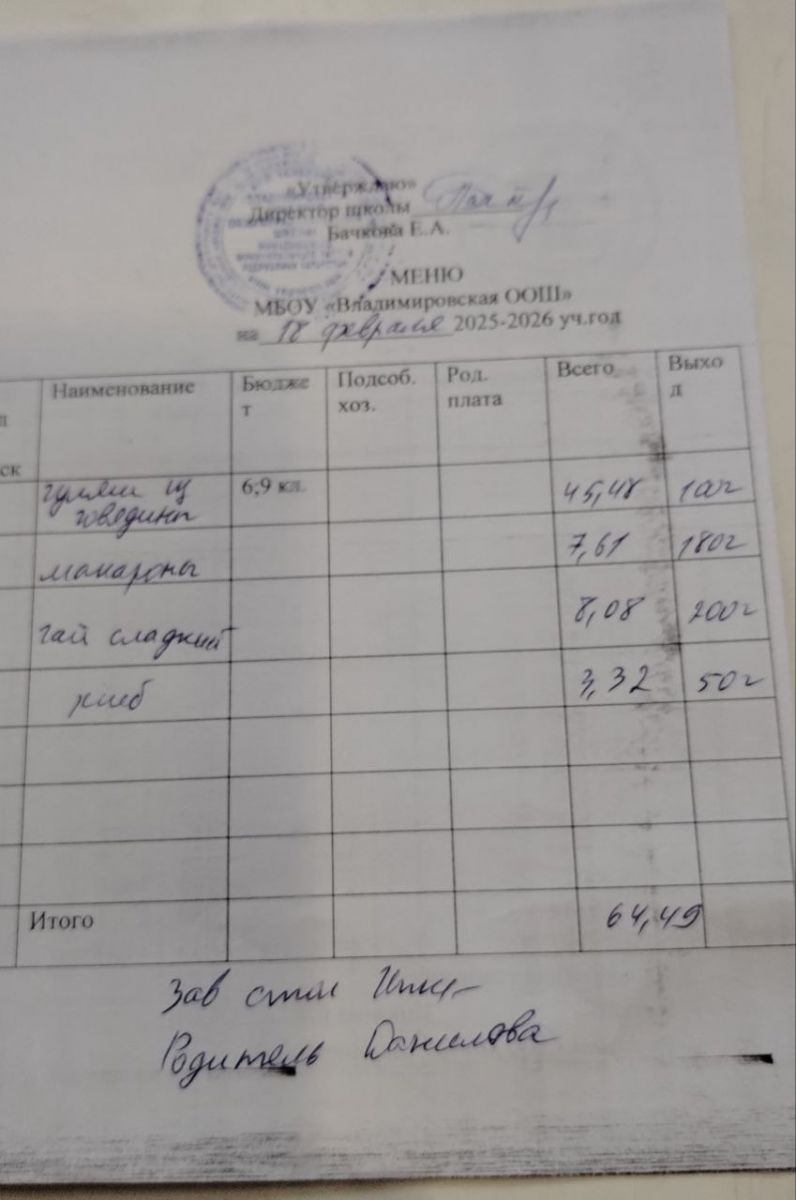 «Утверждаю»
Директор школы
Бачкова Е.А.
МЕНЮ
МБОУ «Владимировская ООШ»
на 18 февраля 2025-2026 уч.год
Наименование Бюджет Подсоб. хоз. Род. плата Всего Выход
ск
гуляш из говядины 6;9 кл. 45,48 100г
макароны 7,61 180г
чай сладкий 8,08 200г
хлеб 3,32 50г
Итого 64,49
Зав стол
Родитель Данилова